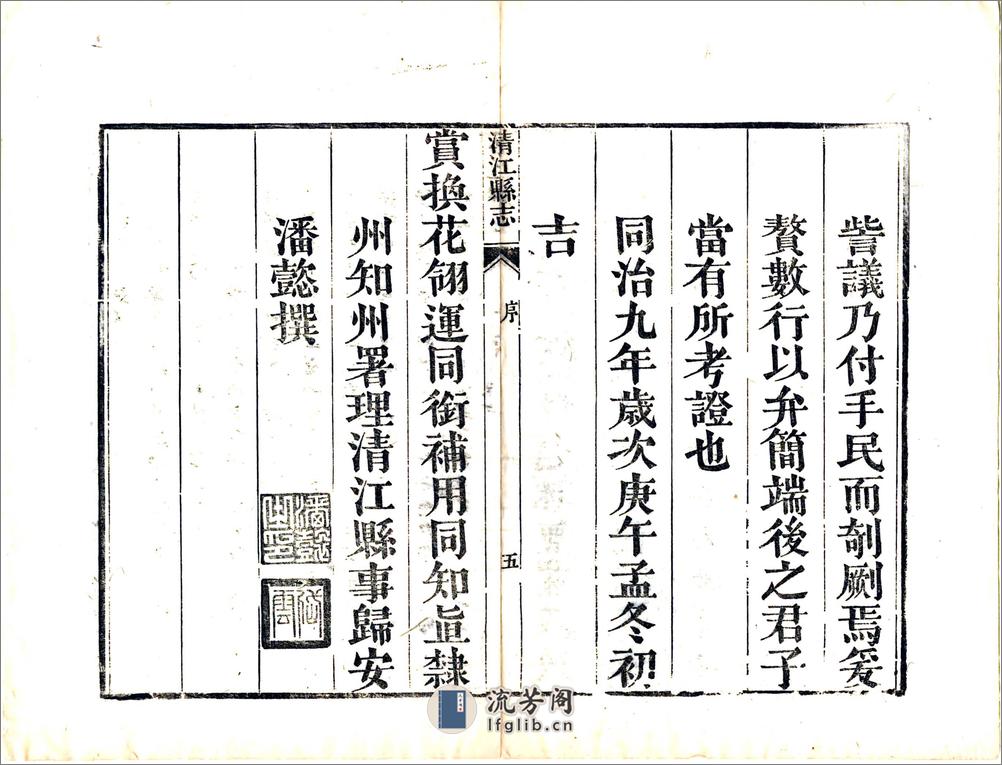 訾議乃付手民而剞劂焉爰
贅數行以弁簡端後之君子
當有所考證也
同治九年歲次庚午孟冬初
吉
清江縣志
序
五
賞換花翎運同銜補用同知直隸
州知州署理清江縣事歸安
潘懿撰
潘懿
之印
流芳阁
lfglib.cn